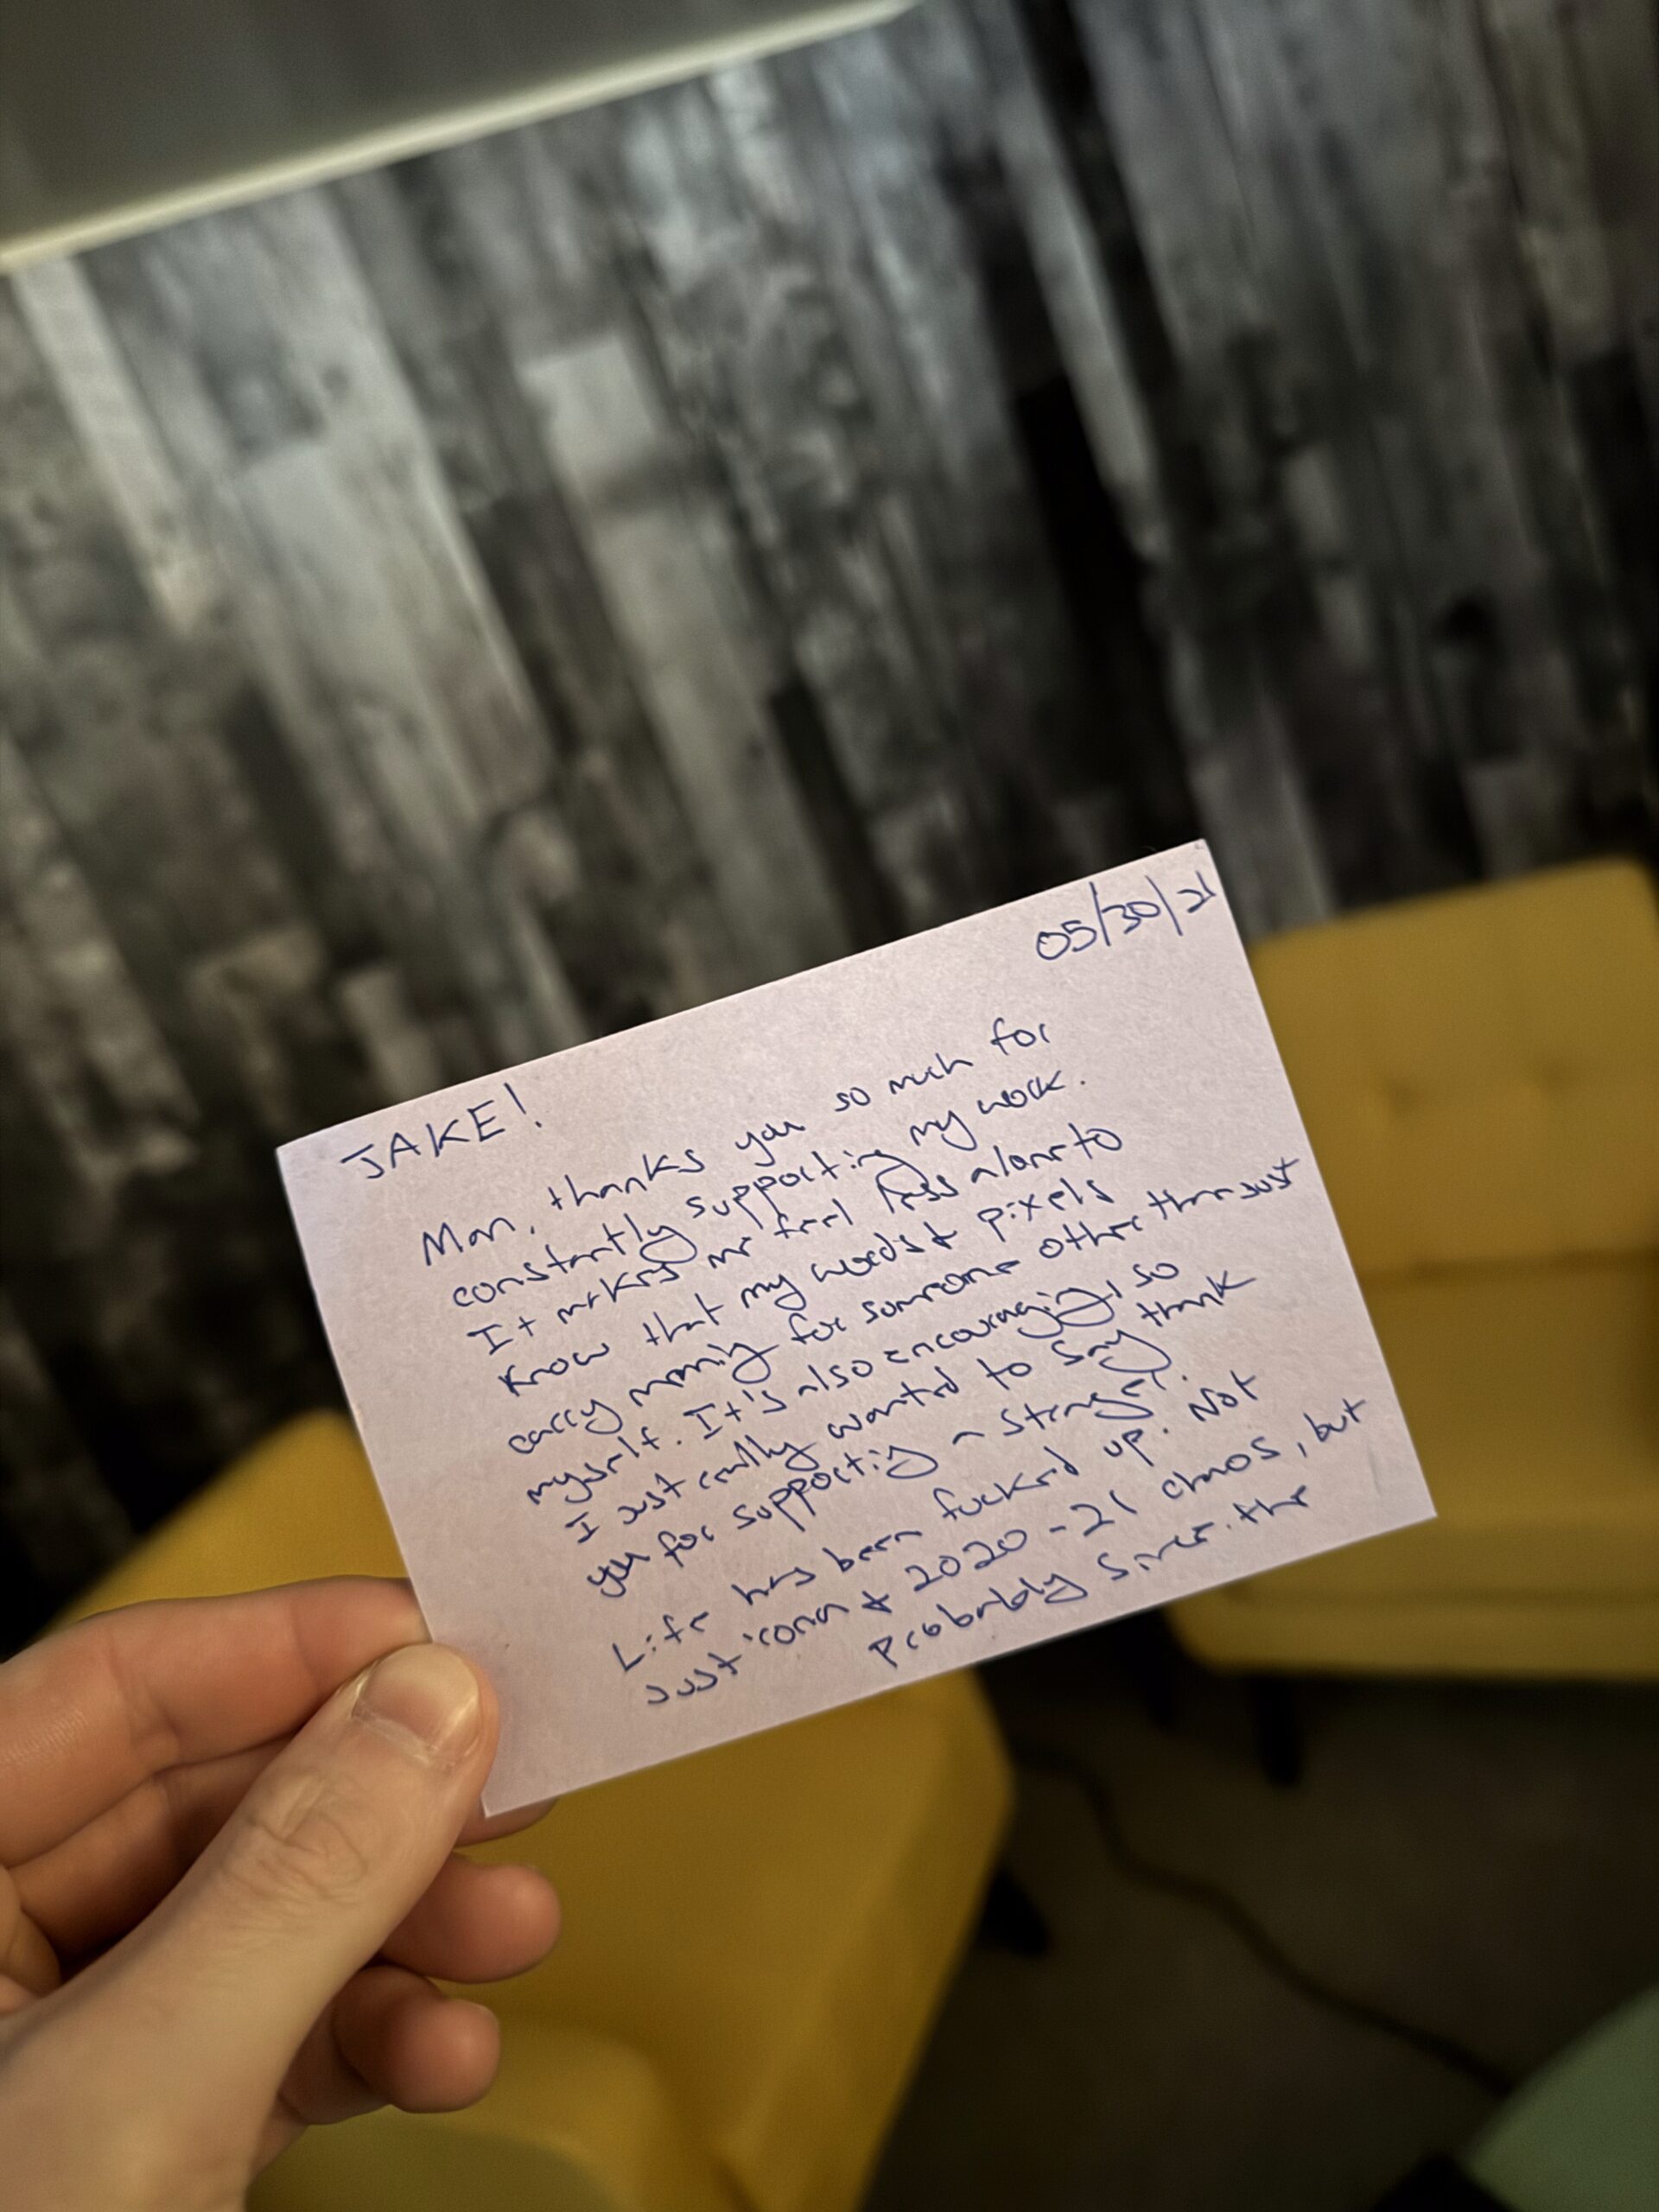 05/30/21
JAKE!
Man, thanks you so much for
constantly supporting my work.
It makes me feel less alone to
know that my words & pixels
carry meaning for someone other than just
myself. It's also encouraging, so
I just really wanted to say thank
you for supporting a stranger.
Life has been fucked up. Not
just 'rona & 2020-21 chaos, but
probably since the